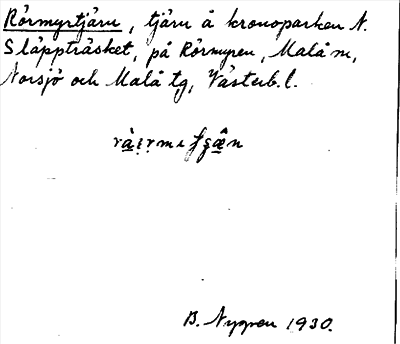 Rörmyrtjärn, tjärn å kronoparken N.
Släppträsket, på Rörmyren, Malå sn,
Norsjö och Malå tg, Västerb. l.
B. Nygren 1930.